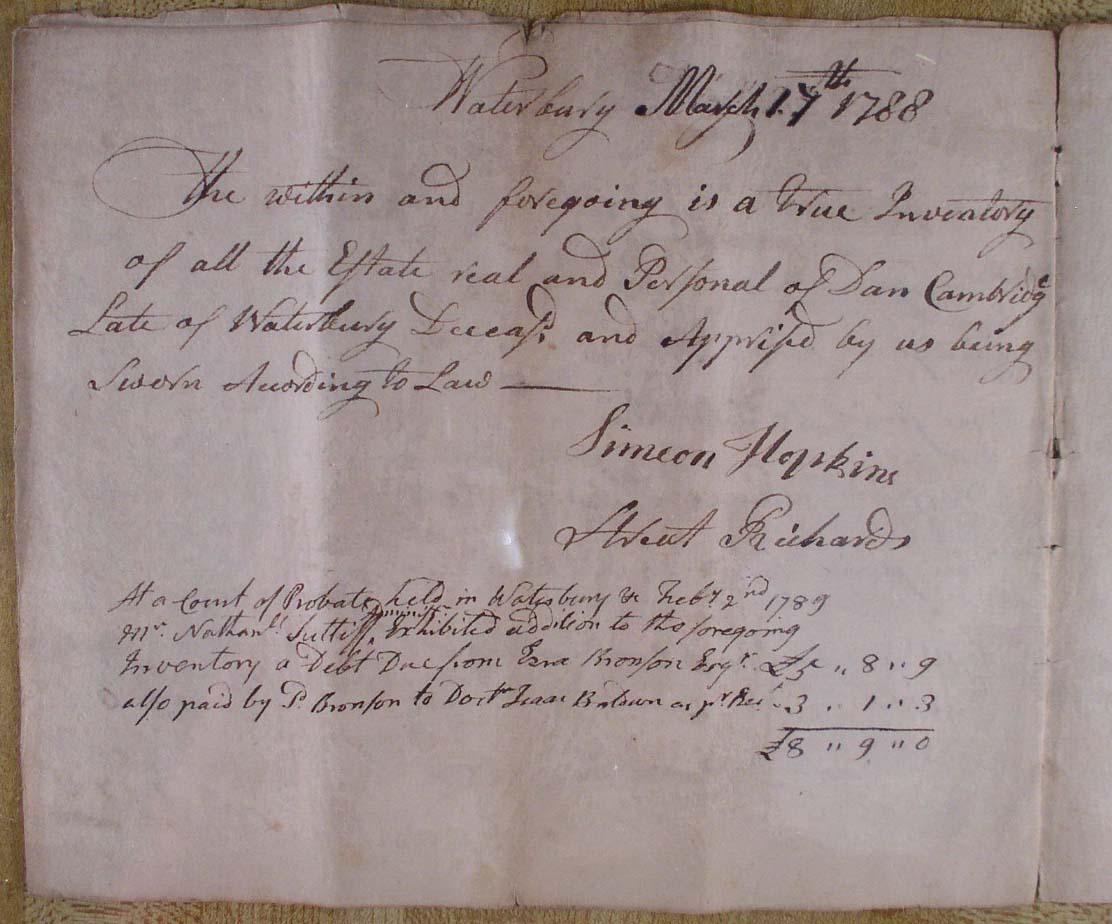 Waterbury March 17th 1788
The within and foregoing is a True Inventory
of all the Estate real and Personal of Dan Cambridg
Late of Waterbury Deceasd and Apprised by us being
Sworn Acording to Law
Simeon Hopkins
Street Richards
At a Court of Probate held in Waterbury Feby 2nd 1789
Mr. Nathanll Sutliff, Adminr Exhibited addition to the foregoing
Inventory a Debt Due from Ezra Bronson Esqr. £5 " 8 " 9
also paid by Sd Bronson to Doctr Isaac Baldwin as pr Rect 3 " 1 " 3
£8 " 9 " 0